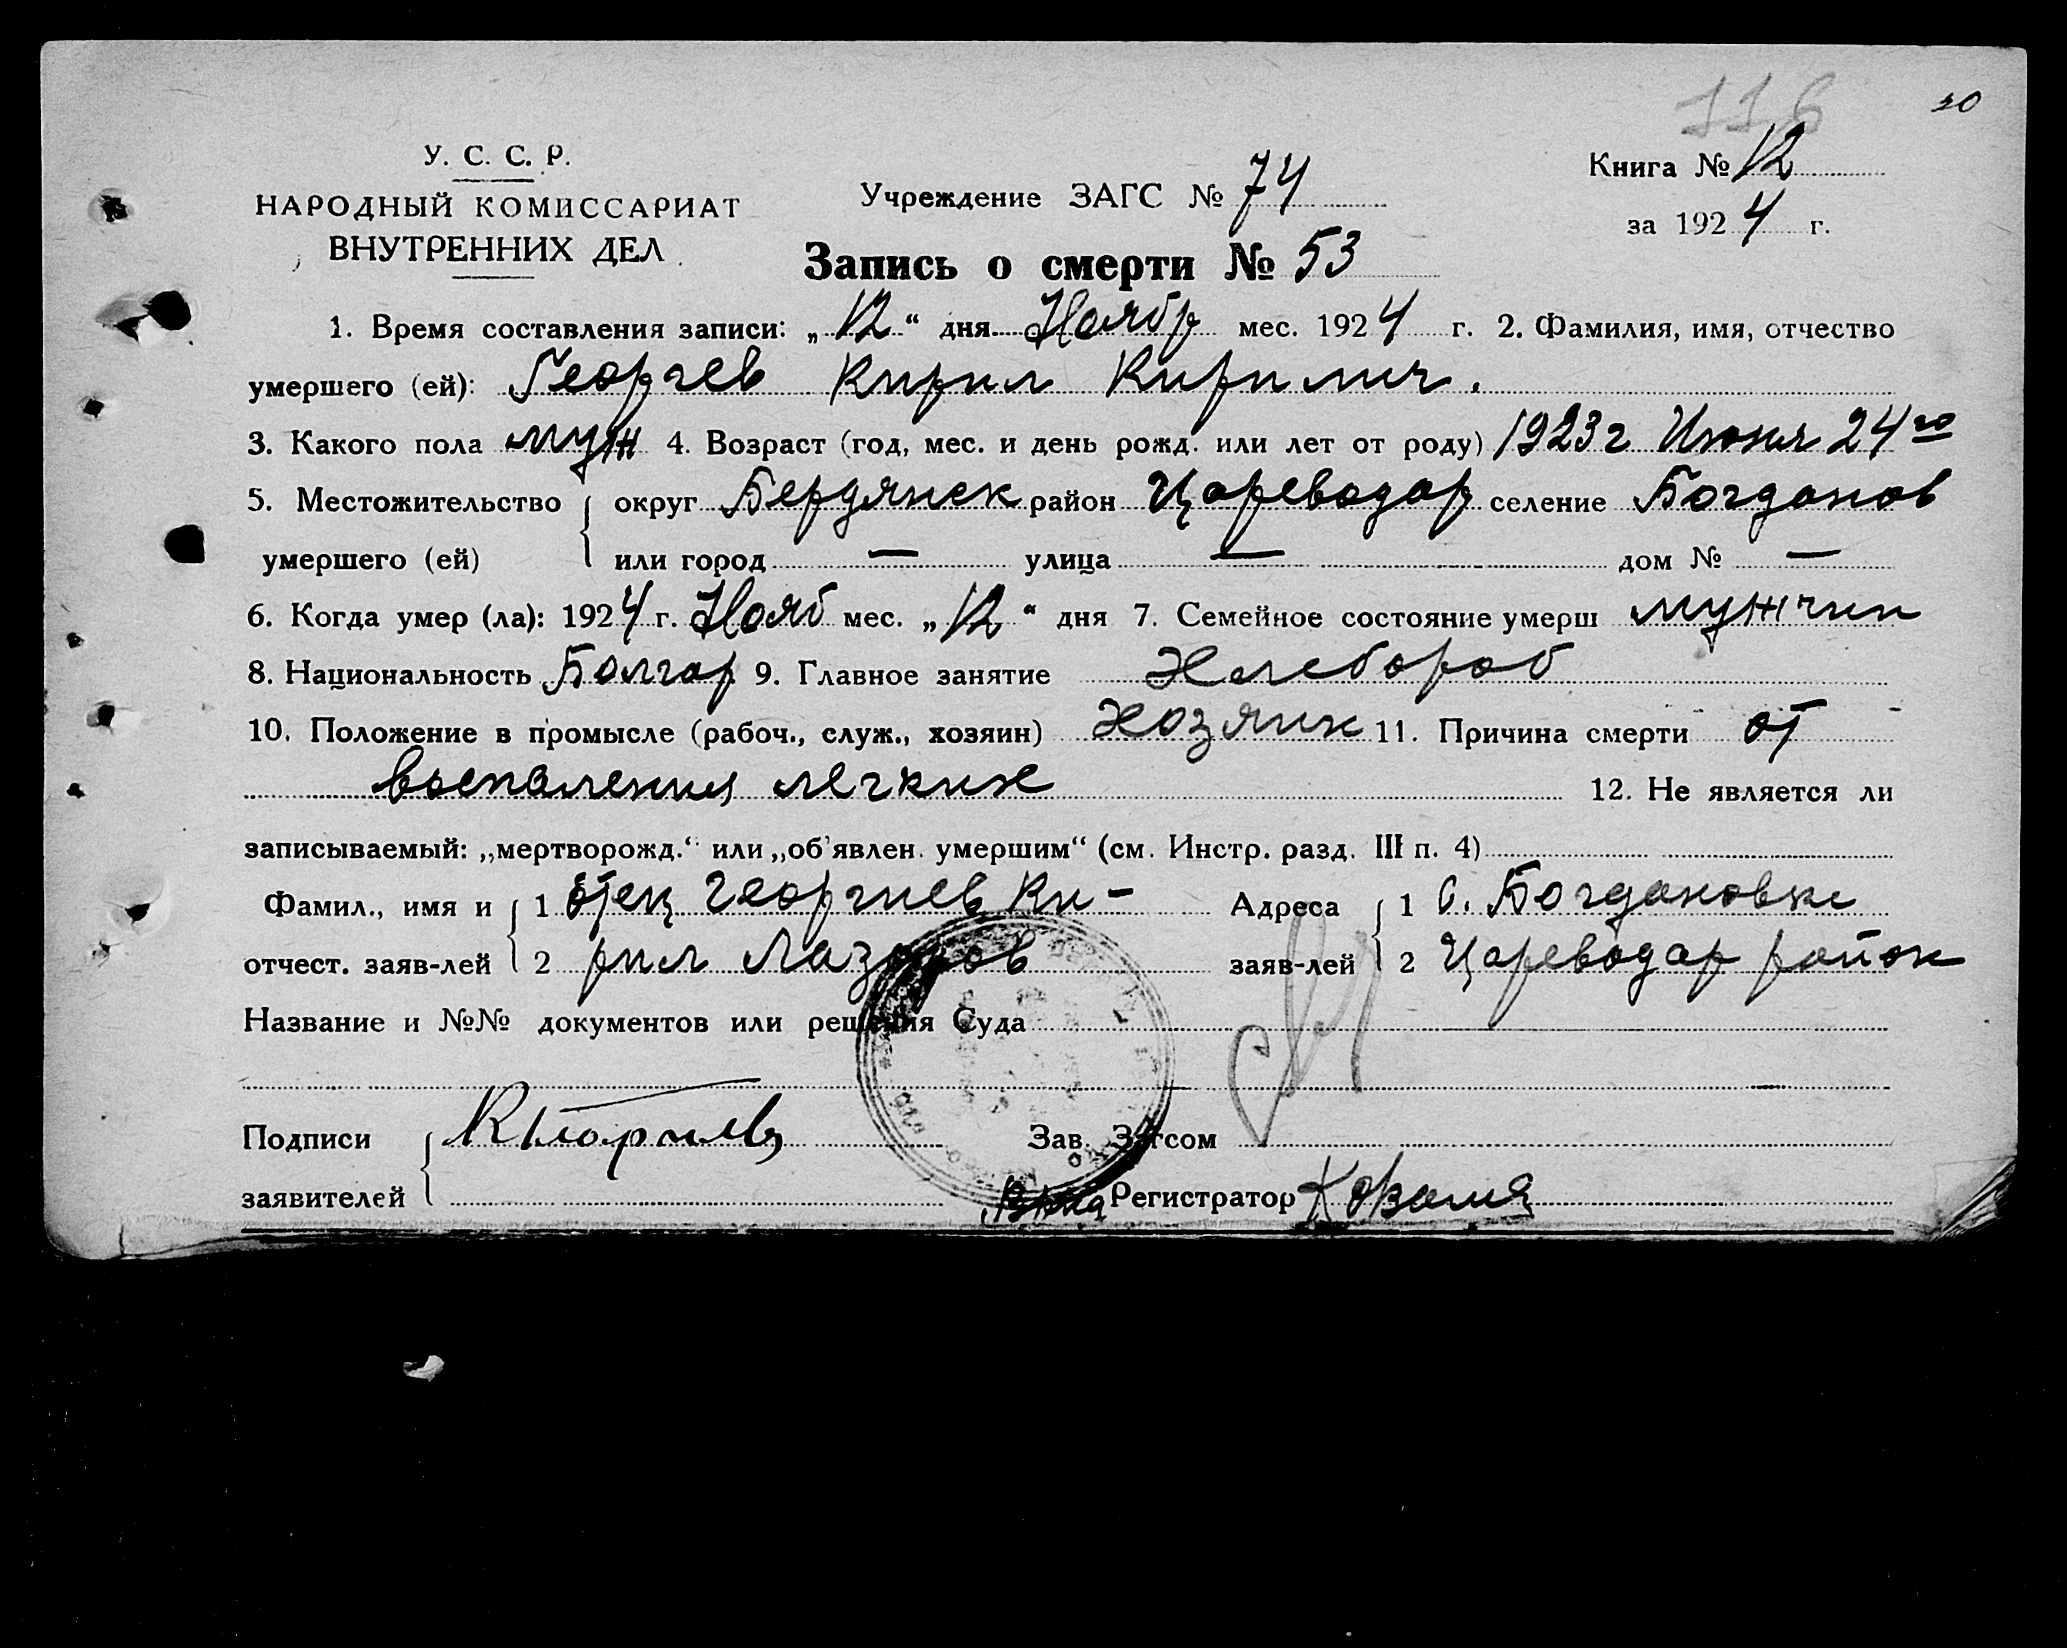 116
20
У. С. С. Р.
НАРОДНЫЙ КОМИССАРИАТ
ВНУТРЕННИХ ДЕЛ
Учреждение ЗАГС № 74
Книга № 12
за 1924 г.
Запись о смерти № 53
1. Время составления записи: „12“ дня Ноябр мес. 1924 г. 2. Фамилия, имя, отчество
умершего (ей): Георгев Кирил Кирилич.
3. Какого пола муж 4. Возраст (год, мес. и день рожд. или лет от роду) 1923 г Июня 24го
5. Местожительство округ Бердянск район Цареводар селение Богданов
умершего (ей) или город — улица — дом № —
6. Когда умер (ла): 1924 г. Нояб мес. „12“ дня 7. Семейное состояние умерш мужчин
8. Национальность Болгар 9. Главное занятие Хлебороб
10. Положение в промысле (рабоч., служ., хозяин) Хозяин 11. Причина смерти от
воспаления легких 12. Не является ли
записываемый: „мертворожд.“ или „об'явлен. умершим“ (см. Инстр. разд. III п. 4)
Фамил., имя и 1 отец Георгиев Ки- Адреса 1 С. Богдановке
отчест. заяв-лей 2 рил Лазаров заяв-лей 2 Цареводар район
Название и №№ документов или решения Суда
Подписи Зав. Загсом
заявителей Регистратор